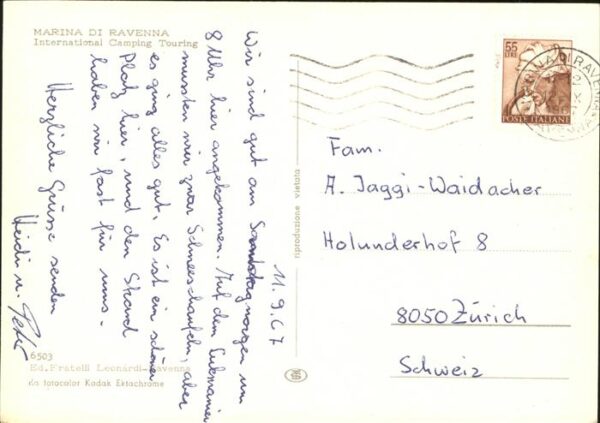 MARINA DI RAVENNA
International Camping Touring
11.9.67
Wir sind gut am Sonntagmorgen um
8 Uhr hier angekommen. Auf dem
mussten wir zwar Schneeschaufeln, aber
es ging alles gut. Es ist ein schöner
Platz hier, und den Strand
haben wir fast für uns.
Herzliche Grüsse senden
Heidi u. Peter
55
LIRE
POSTE ITALIANE
MARINA DI RAVENNA
Fam.
A. Jaggi-Waidacher
Holunderhof 8
8050 Zürich
Schweiz
riproduzione vietata
6503
Ed. Fratelli Leonardi-Ravenna
da fotocolor Kodak Ektachrome